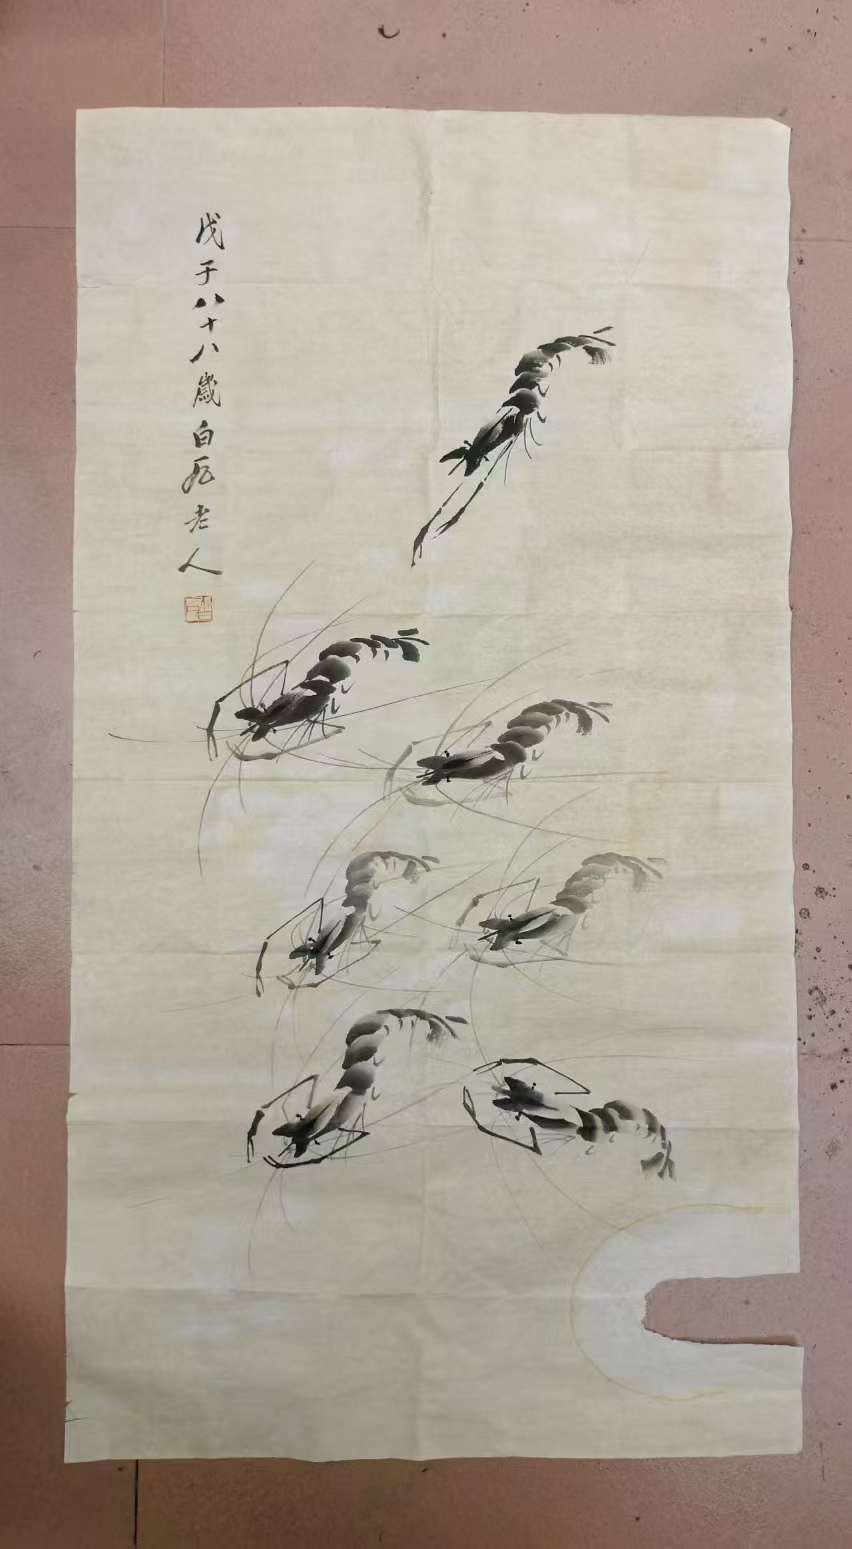 戊子八十八歲白石老人